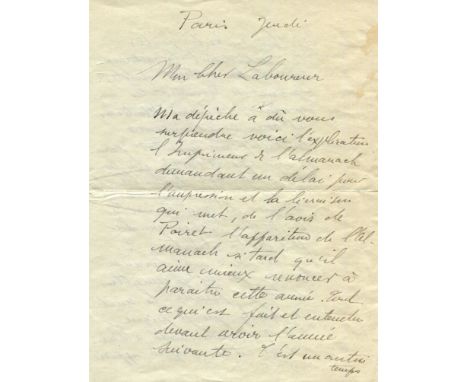 Paris Jeudi
Mon Cher Laboureur
Ma dépêche à dû vous
surprendre voici l'explication
l'Imprimeur de l'almanach
demandant un délai pour
l'impression et la livraison
qui met, de l'avis de
Poiret l'apparition de l'Al-
manach si tard qu'il
aime mieux renoncer à
paraitre cette année. Tout
ce qui est fait et entendu
devant avoir l'année
suivante. C'est un autre
temps